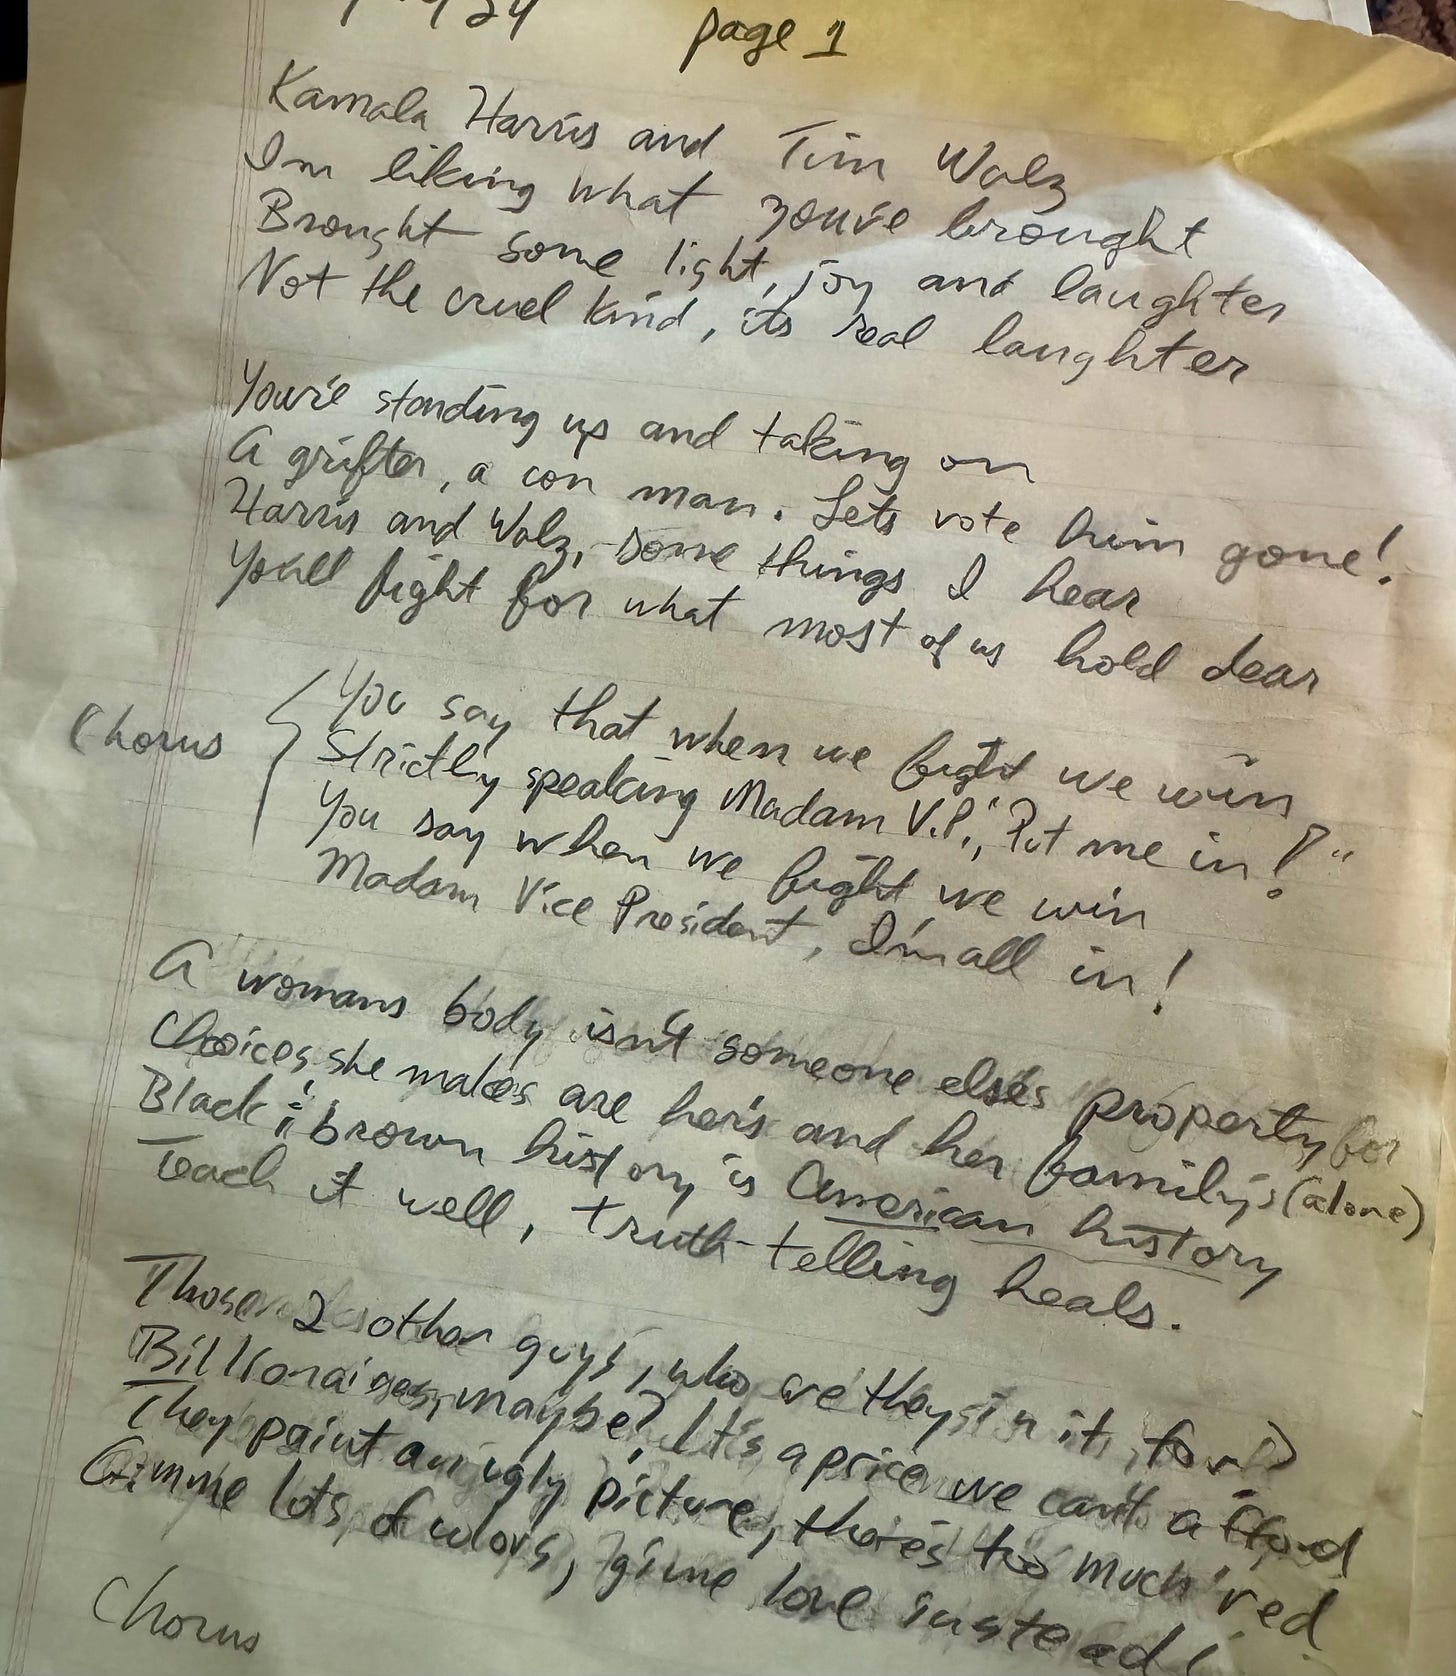 page 1
Kamala Harris and Tim Walz
I'm liking what you've brought
Brought some light, joy and laughter
Not the cruel kind, its real laughter
You're standing up and taking on
A grifter, a con man. Lets vote him gone!
Harris and Walz, some things I hear
You'll fight for what most of us hold dear
Chorus
You say that when we fight we win
Strictly speaking Madam V.P., "Put me in!"
You say when we fight we win
Madam Vice President, I'm all in!
A womans body isn't someone else's property
Choices she makes are her's and her family's (alone)
Black & brown history is American history
Teach it well, truth-telling heals.
Those 2 other guys, who are they in it for?
Billionaires, maybe? It's a price we can't afford
They paint an ugly picture, there's too much red
Gimme lots of colors, gimme love instead!
Chorus